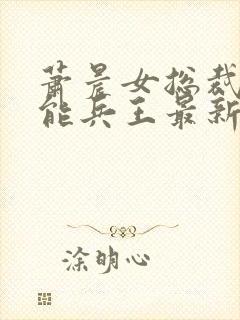 萧晨女总裁
能兵王最新
涂明心